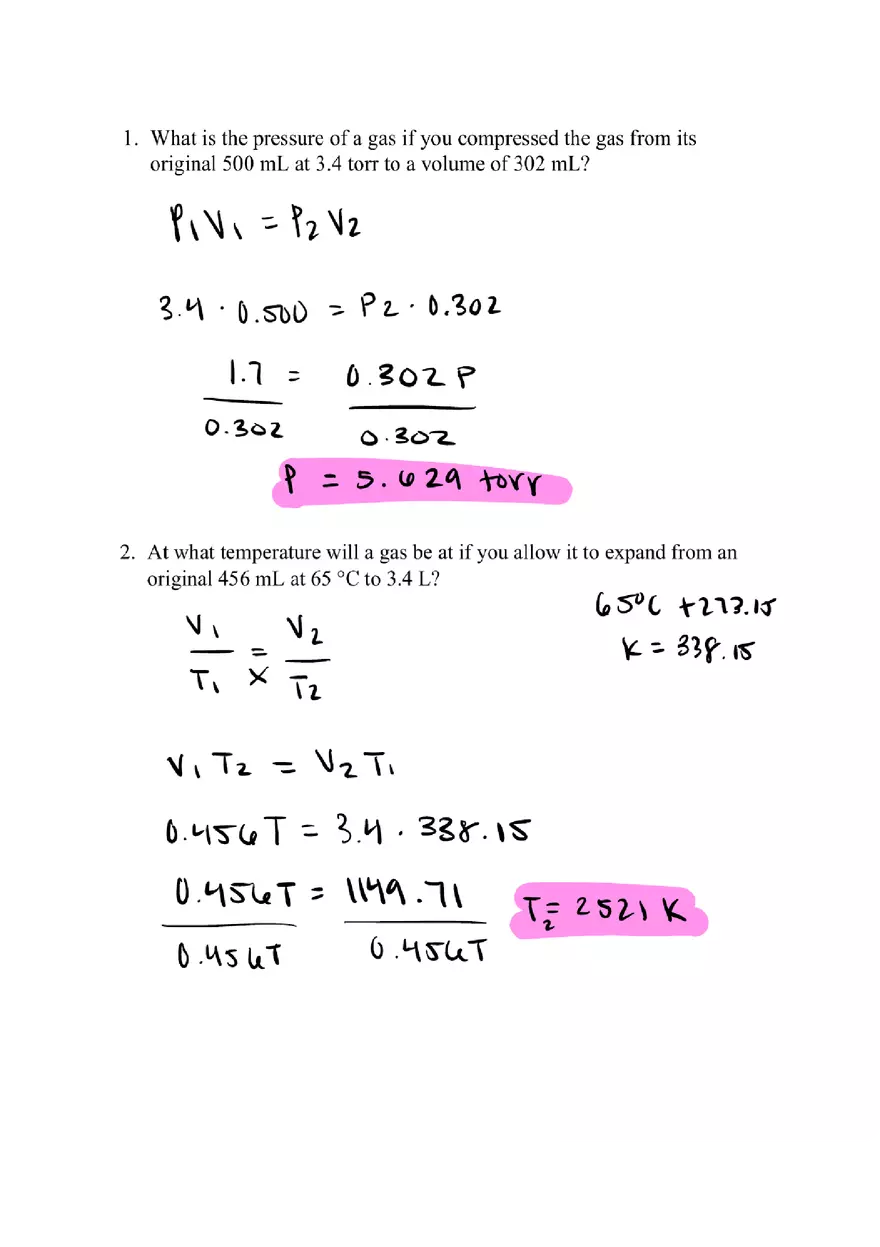 1. What is the pressure of a gas if you compressed the gas from its
original 500 mL at 3.4 torr to a volume of 302 mL?
P₁V₁ = P₂V₂
3.4 · 0.500 = P₂ · 0.302
1.7 = 0.302 P
0.302 0.302
P = 5.629 torr
2. At what temperature will a gas be at if you allow it to expand from an
original 456 mL at 65 °C to 3.4 L?
65°C +273.15
K = 338.15
V₁ = V₂
T₁ × T₂
V₁T₂ = V₂T₁
0.456T = 3.4 · 338.15
0.456T = 1149.71
0.456T 0.456T
T₂ = 2521 K